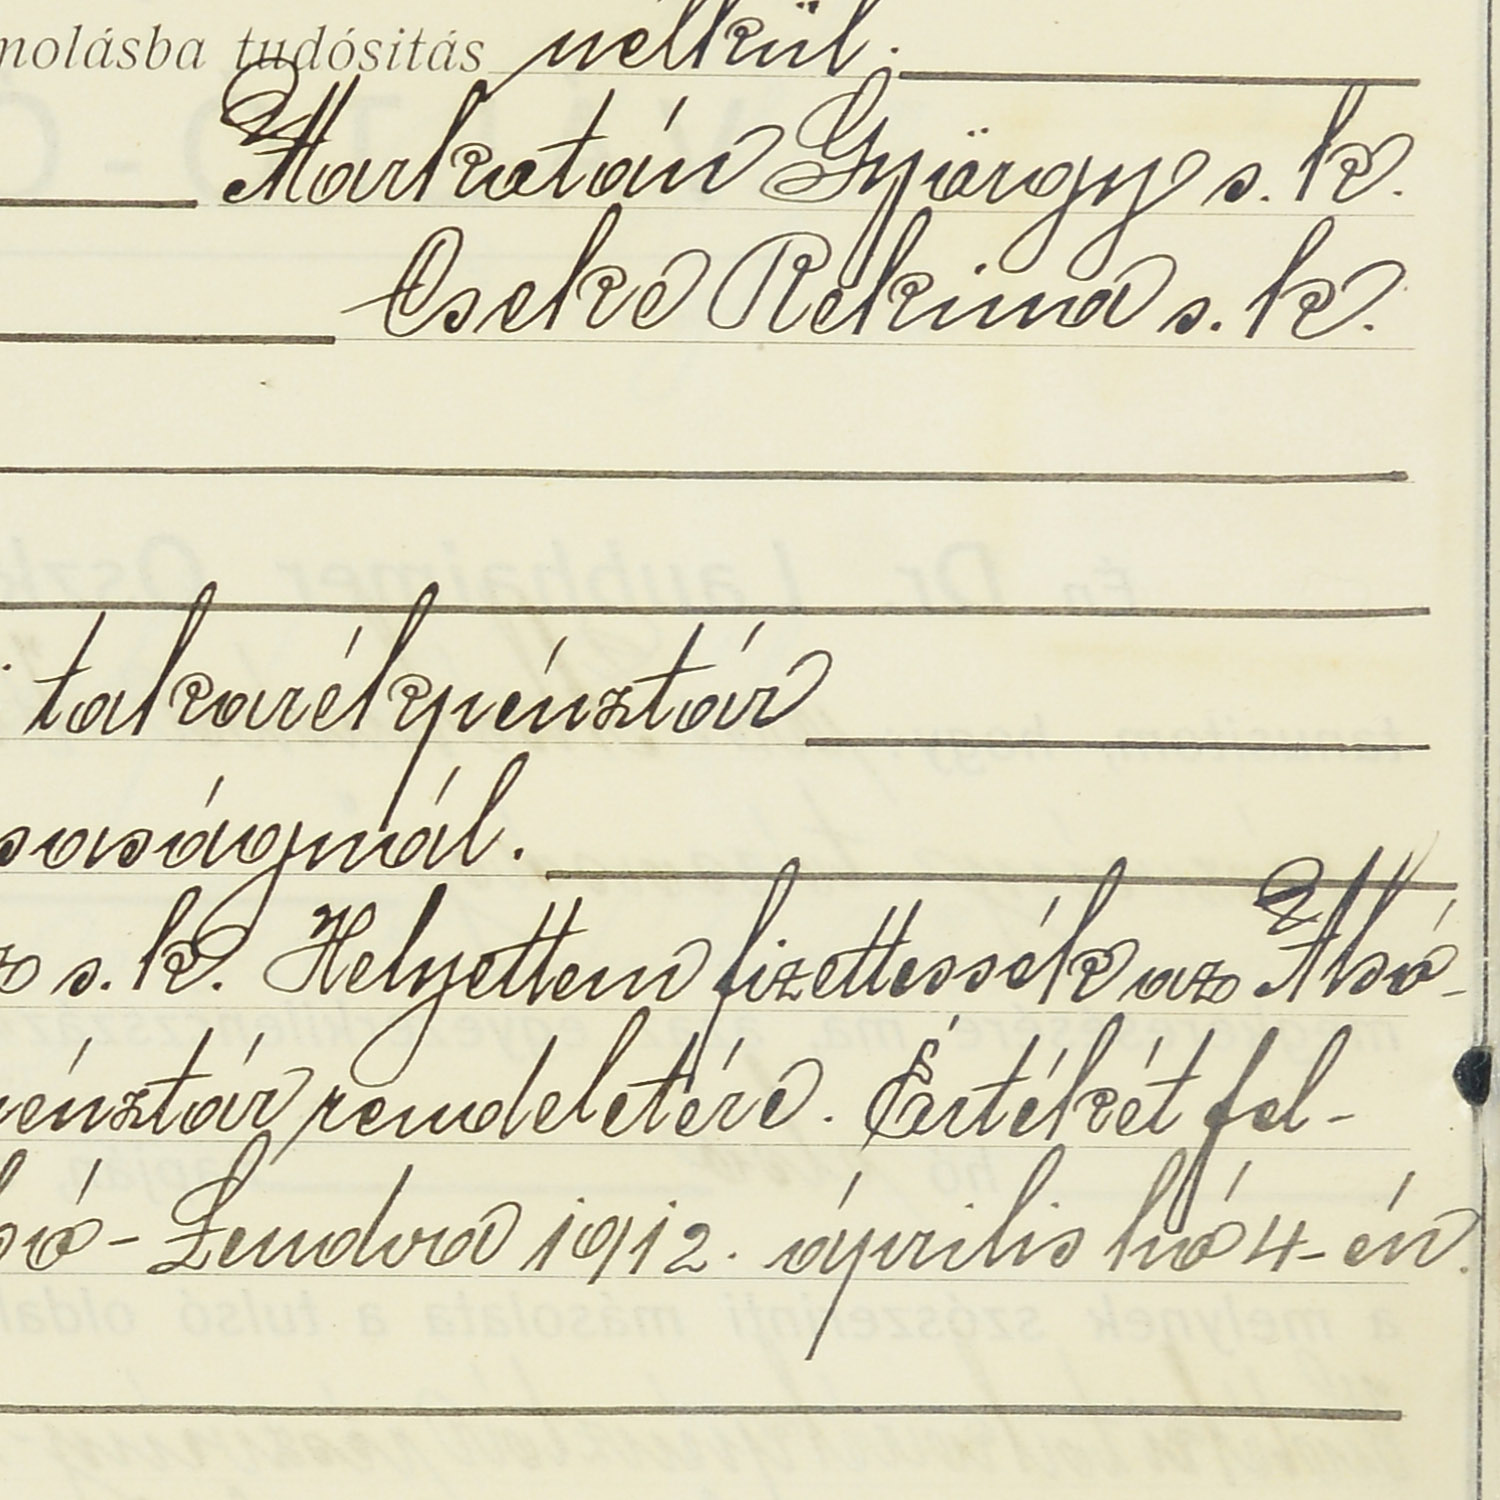 molásba tudósitás nélkül.
Markatán György s. k.
Cseke Rekina s. k.
takarékpénztár
saságnál.
s. k. Helyettem fizettessék az Alsó-
énztár rendeletére. Értékét fel-
só-Lendva 1912. április hó 4-én.